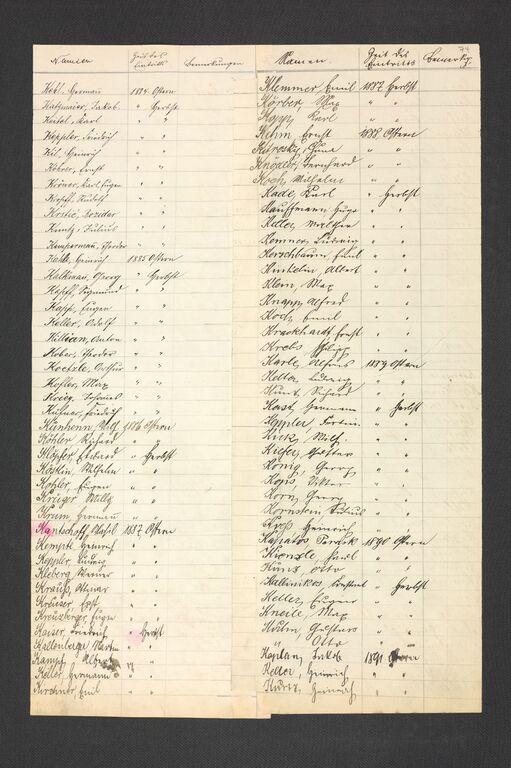 Namen Zeit des Eintritts Bemerkungen
Kehl, Hermann 1884 Ostern
Katzmaier, Jakob " Herbst
Keitel, Karl " "
Keppler, Friedrich " "
Kil, Heinrich " "
Köhrer, Ernst " "
Körner, Karl Eugen " "
Kopff, Rudolf " "
Krstić, Bozidar " "
Kuntz, Julius " "
Kempermann, Theodor " "
Heinrich 1885 Ostern
Kalkman, Georg " Herbst
Kapff, Sigmund " "
Kapp, Eugen " "
Keller, Adolf " "
Killian, Anton " "
Kober, Theodor " "
Kockzle, Arthur " "
Kofler, Max " "
Krieg, Johannes " "
Küfner, Friedrich " "
Künhenn, 1886 Ostern
Köhler Richard " "
Klöpfer, Eduard " Herbst
Köstlin, Wilhelm " "
Kohler, Eugen " "
Krieger Willy " "
Krum, Hermann " "
Kantscheff, Vasil 1887 Ostern
Kempte, Heinrich " "
Keppler, Ludwig " "
Kleberg, Werner " "
Krauß, Otmar " "
Kreuser, Ernst " "
Kreuzberger, Eugen " "
Kaiser, Friedrich " Herbst
Kaltenberger, Martin " "
Kampf, Albert " "
Keller, Hermann " "
Kirchner, Emil " "
74
Namen. Zeit des Eintritts Bemerkg.
Klemmer, Emil 1887 Herbst
Körber, Max " "
Kopp, Karl " "
Kehm, Ernst 1888 Ostern
" "
Knödler, Bernhard " "
Koch, Wilhelm " "
Kade, Karl " Herbst
Kauffmann, Hugo " "
Keller, Walther " "
Kemner, Ludwig " "
Kerschbaum, Emil " "
Kinkelin, Albert " "
Klein, Max " "
Knapp, Alfred " "
Koch, Emil " "
Krackhardt, Ernst " "
Krebs, Philipp " "
Karle, Alfons 1889 Ostern
Keller, Ludwig " "
Kunz, Richard " "
Kast, Hermann " Herbst
Keppler, " "
Kick, Wilh. " "
Kiefer, Gustav " "
König, Georg " "
Kops, Viktor " "
Korn, Georg " "
Kornstein, Julius " "
Heinrich " "
Kapatos, 1890 Ostern
Kienzle, Paul " "
Kunz, Otto " "
Kallinikos, " Herbst
Keller, Eugen " "
Kneile, Max " "
Kuhn, Gustav " "
" Otto " "
Kaplan, Jakob 1891 Ostern
Keller, Heinrich " "
Kurtz, Heinrich " "